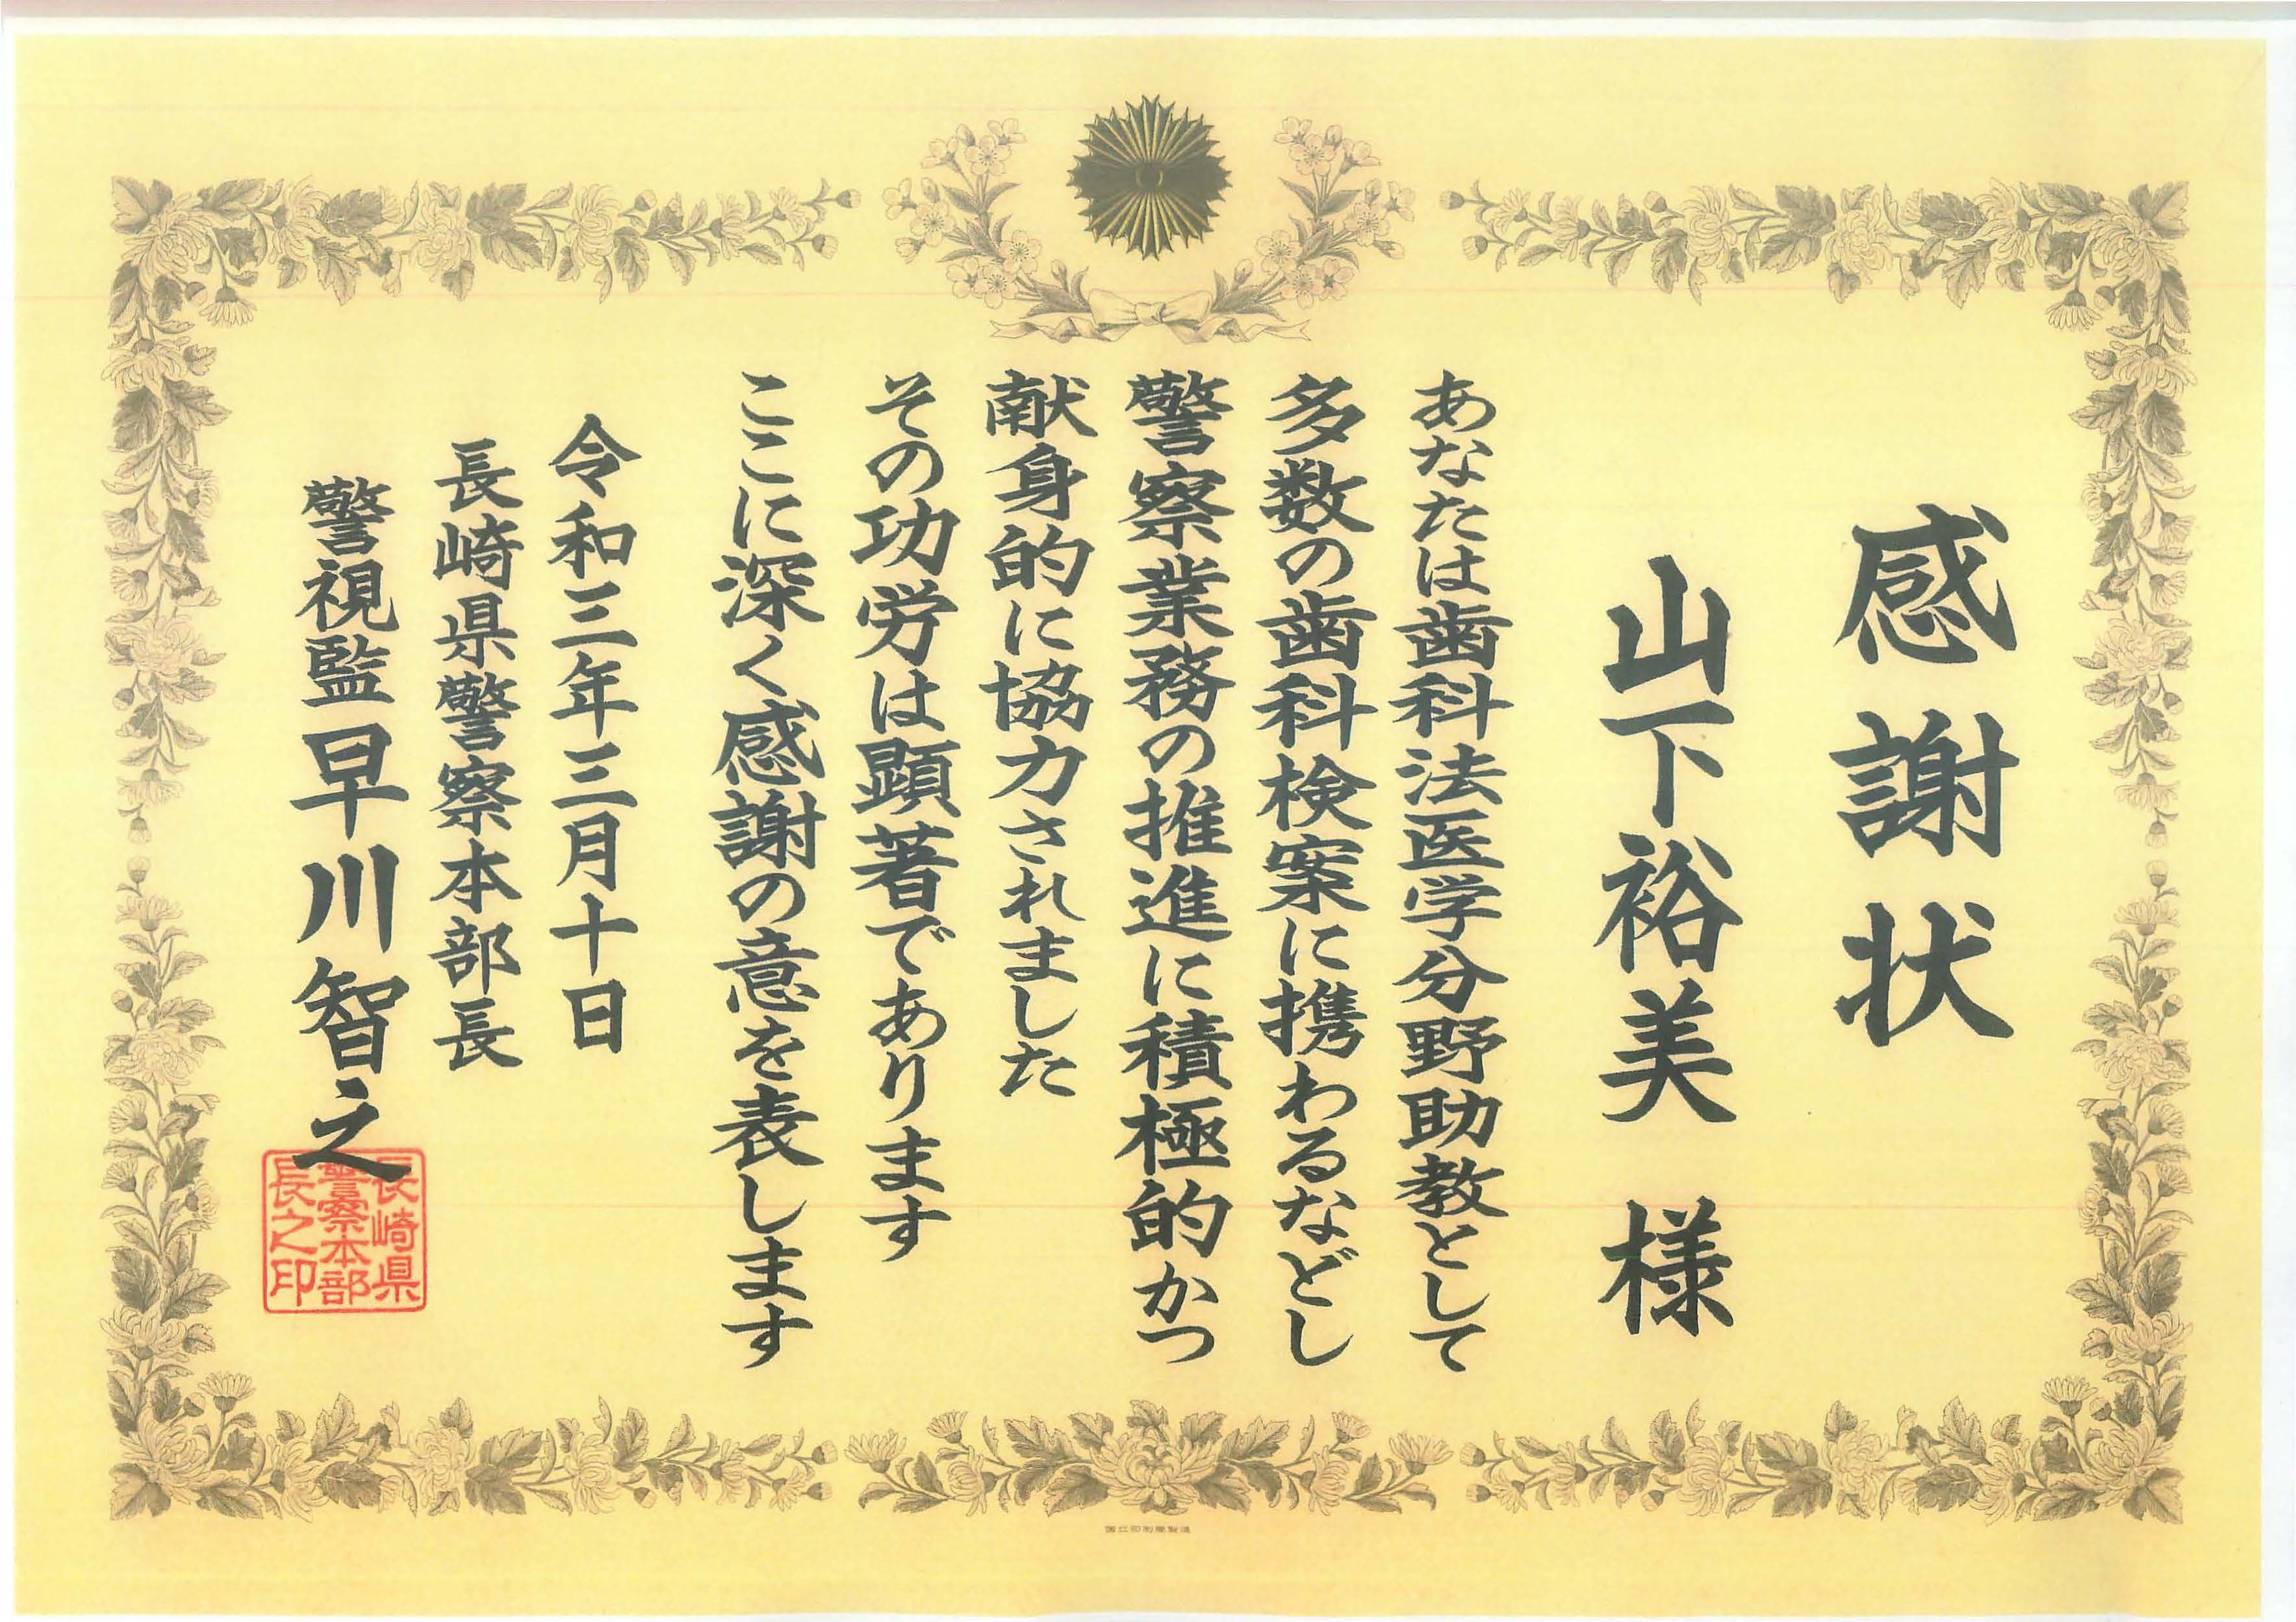 感謝状
山下裕美 様
あなたは歯科法医学分野助教として
多数の歯科検案に携わるなどし
警察業務の推進に積極的かつ
献身的に協力されました
その功労は顕著であります
ここに深く感謝の意を表します
令和三年三月十日
長崎県警察本部長
警視監 早川智之
長崎県
警察本部
長之印
国立印刷局製造